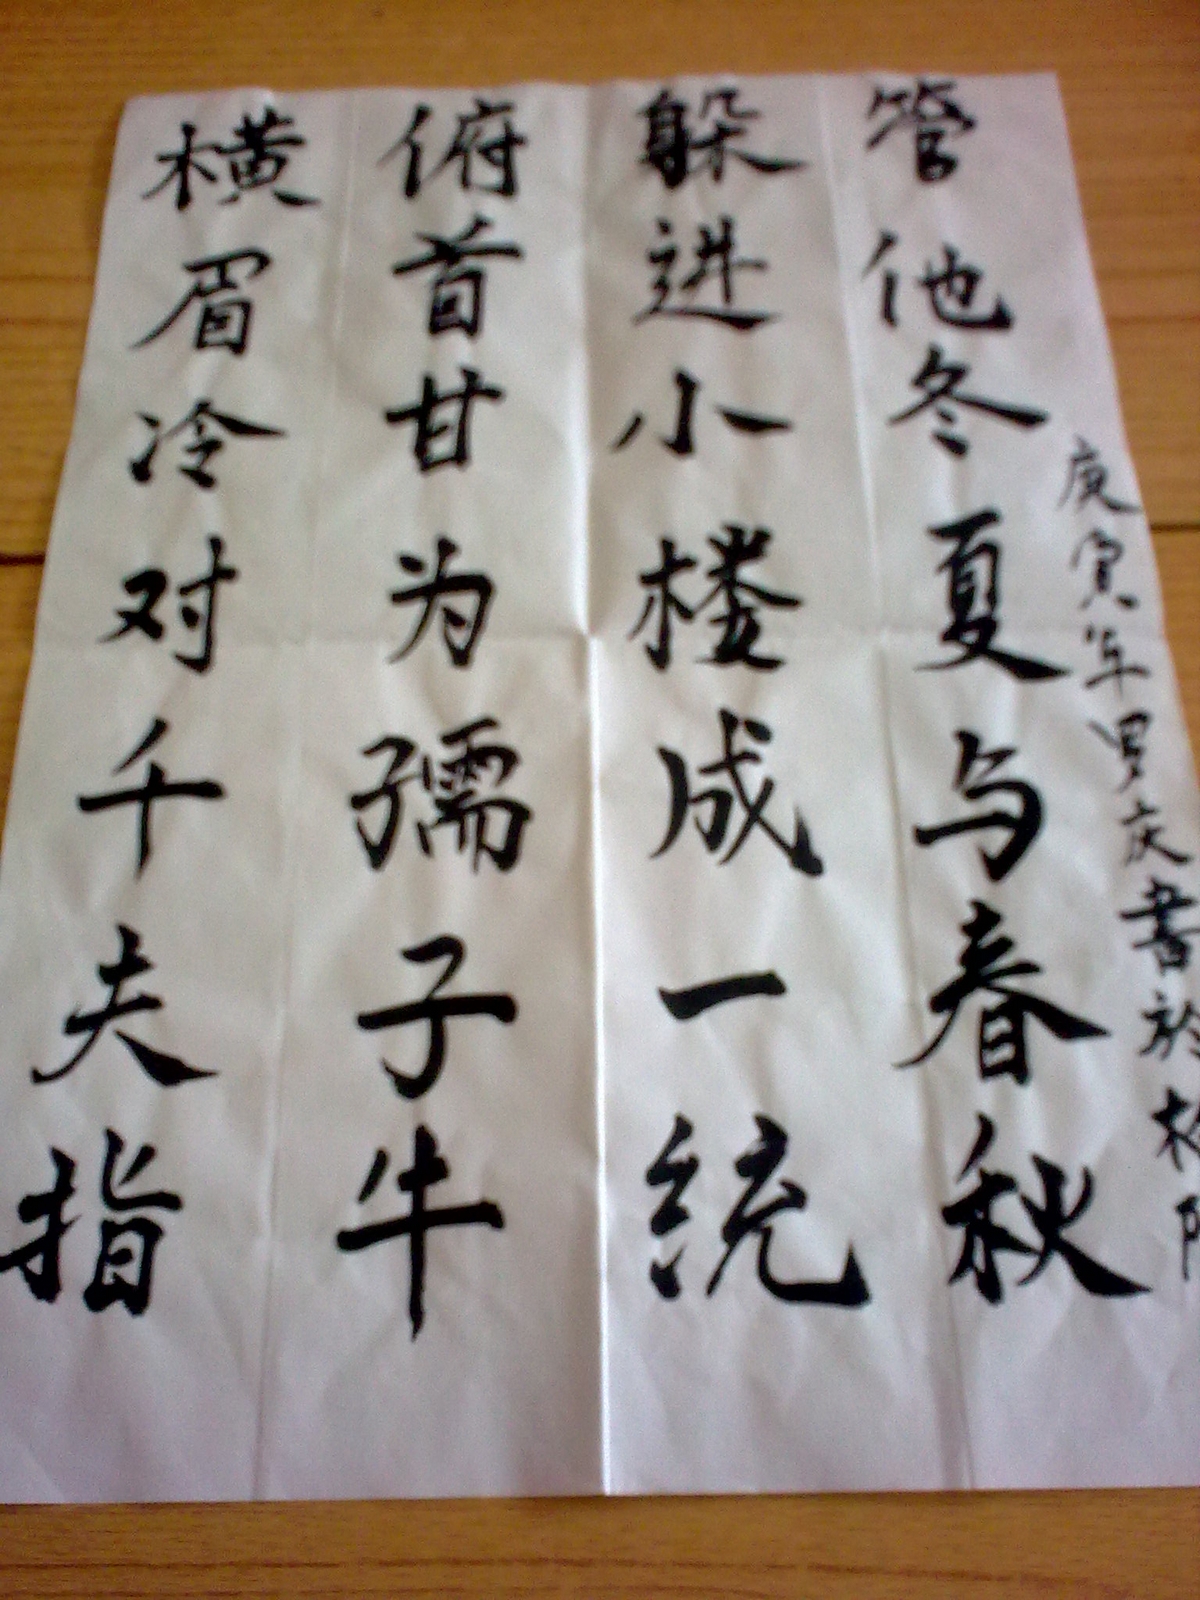 横眉冷对千夫指
俯首甘为孺子牛
躲进小楼成一统
管他冬夏与春秋
庚寅年罗庆书於